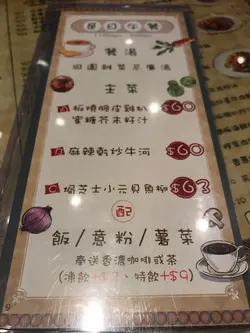 是日午餐
餐湯
田園鮮菜忌廉湯
主菜
A 板燒脆皮雞扒 $60
蜜糖芥末籽汁
B 麻辣乾炒牛河 $60
C 焗芝士小元貝魚柳 $63
配
飯/意粉/薯菜
奉送香濃咖啡或茶
(凍飲+$3、特飲+$9)
9